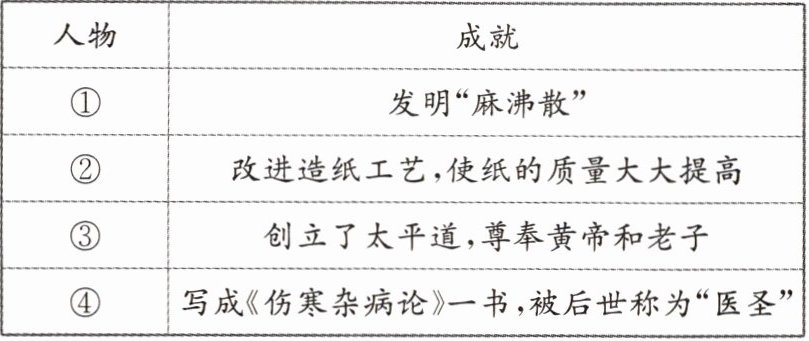 人物 成就
① 发明“麻沸散”
② 改进造纸工艺,使纸的质量大大提高
③ 创立了太平道,尊奉黄帝和老子
④ 写成《伤寒杂病论》一书,被后世称为“医圣”